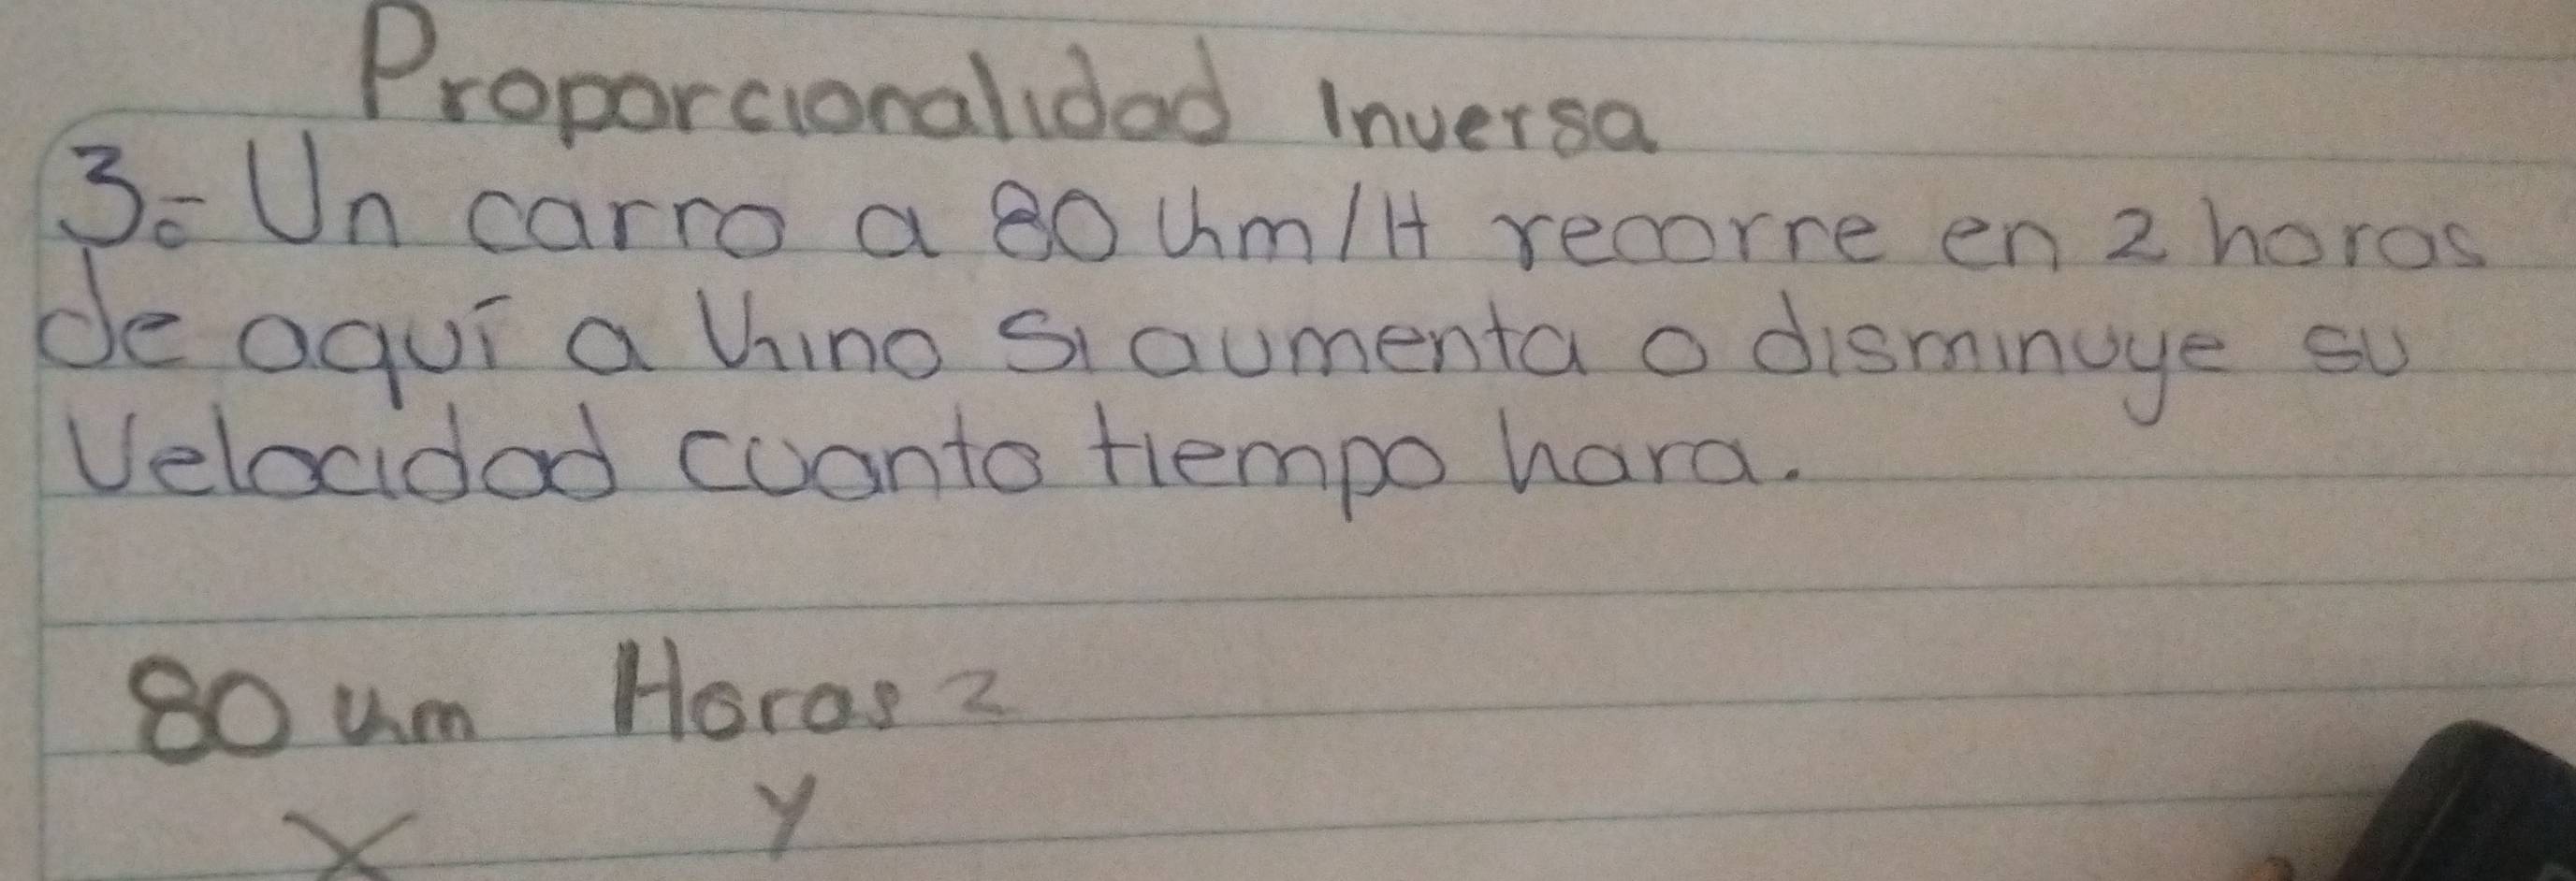 Proporcionalidad Inversa
3.- Un carro a 80 Km/H recorre en 2 horas
de aquí a Kino si aumenta o disminuye su
Velocidad cuanto tiempo hara.
80 km Horas 2
X y